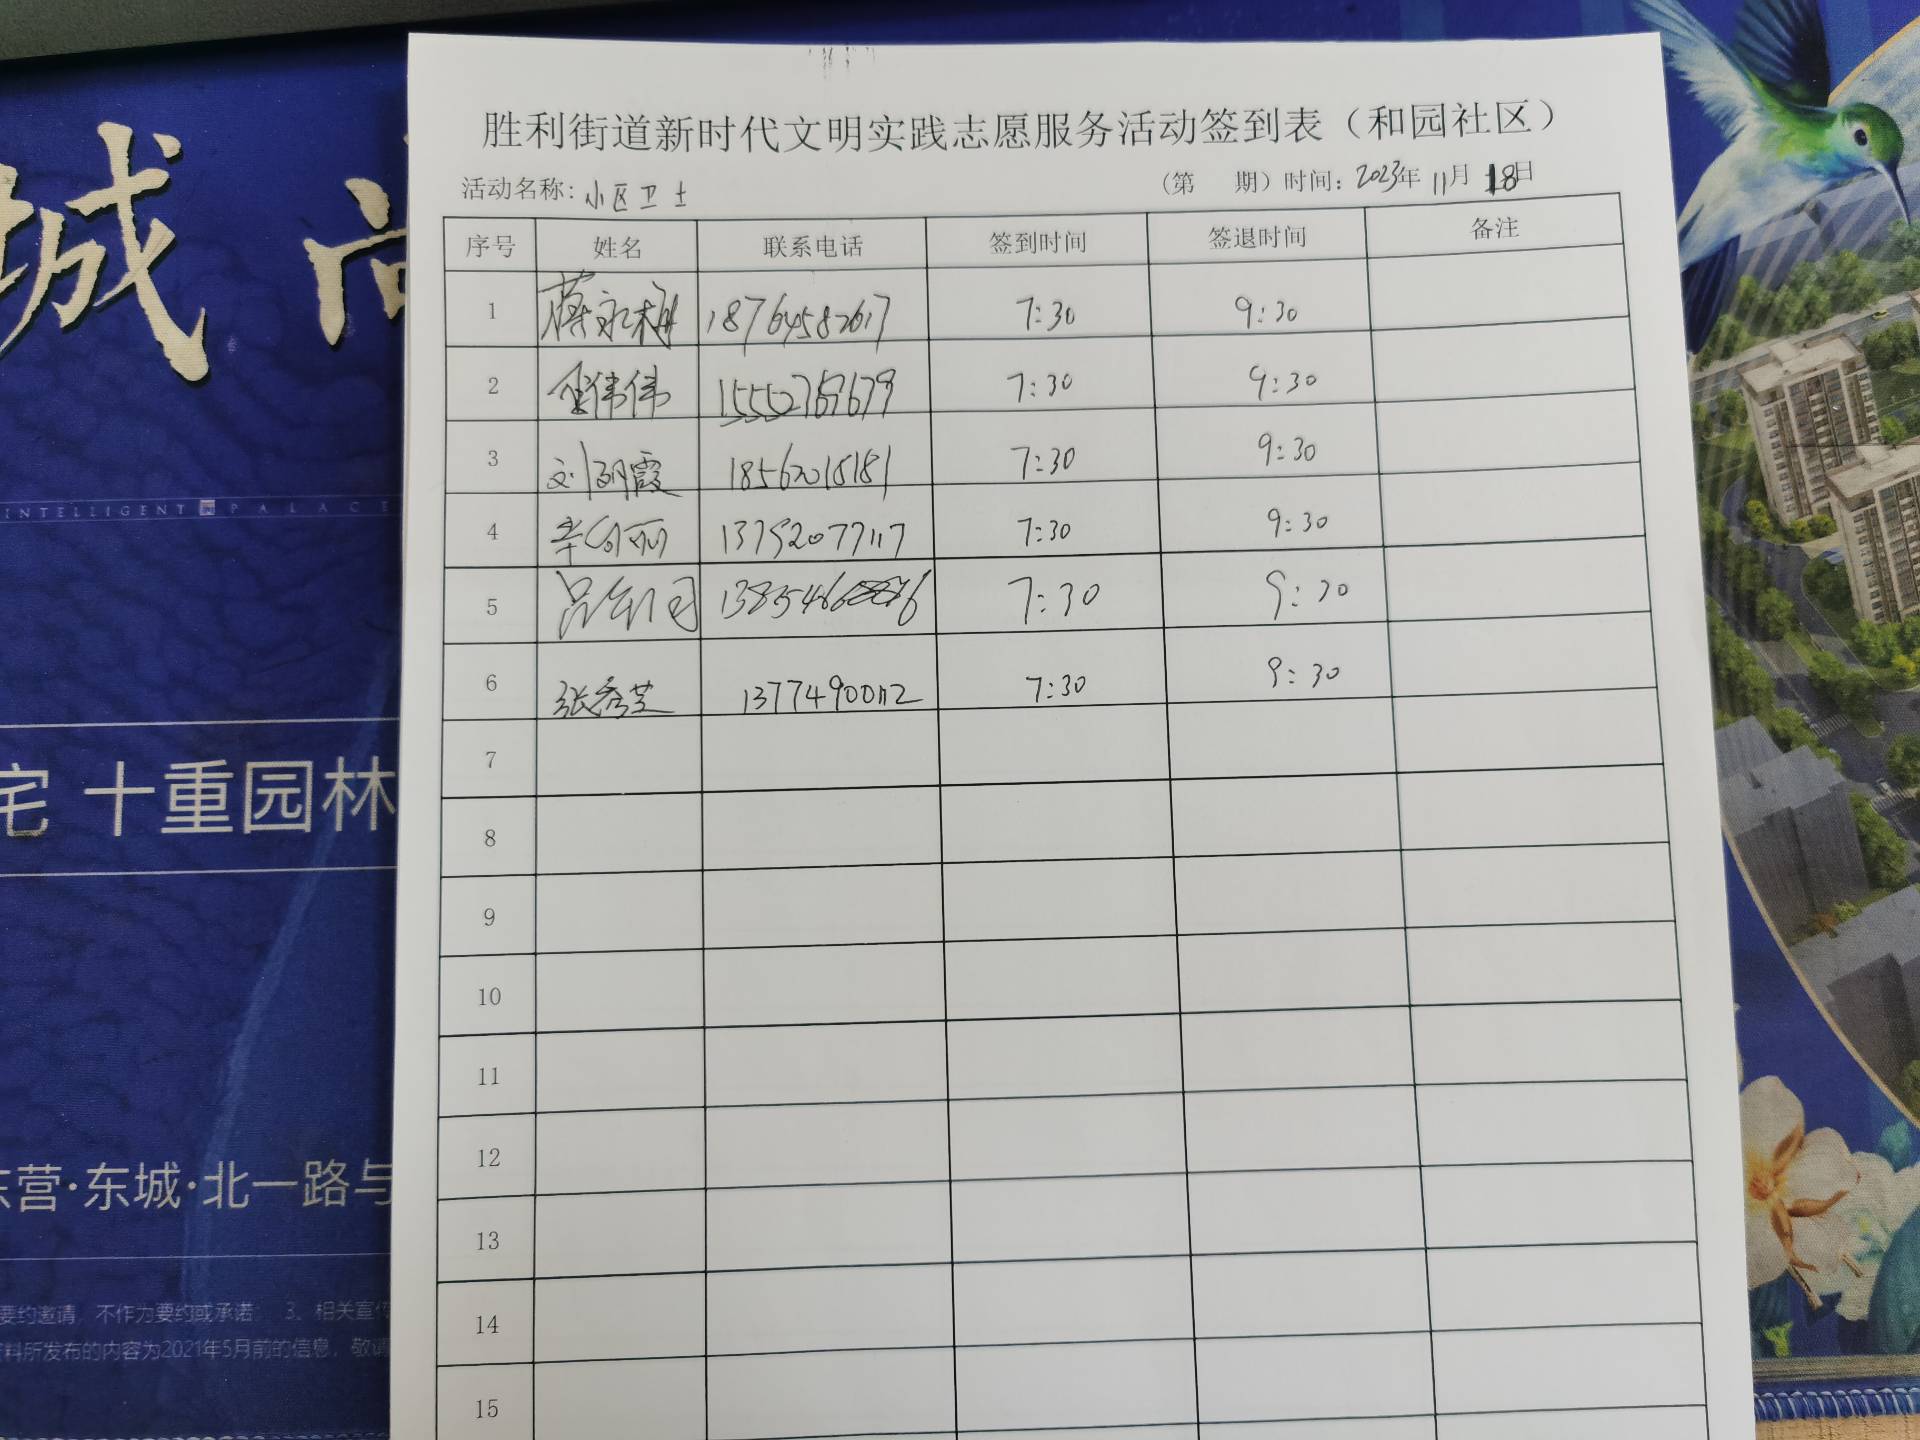 胜利街道新时代文明实践志愿服务活动签到表（和园社区）
活动名称：小区卫士 （第 期）时间：2023年11月18日
序号 姓名 联系电话 签到时间 签退时间 备注
1 蒋永梅 18764582617 7:30 9:30
2 伟伟 7:30 9:30
3 刘丽霞 18562018181 7:30 9:30
4 辛向丽 13792077117 7:30 9:30
5 吕 7:30 9:30
6 张秀芝 13774900112 7:30 9:30
7
8
9
10
11
12
13
14
15
城
INTELLIGENT PALACE
宅 十重园林
东营·东城·北一路与
要约邀请，不作为要约或承诺 3、相关宣传
资料所发布的内容为2021年5月前的信息，敬请